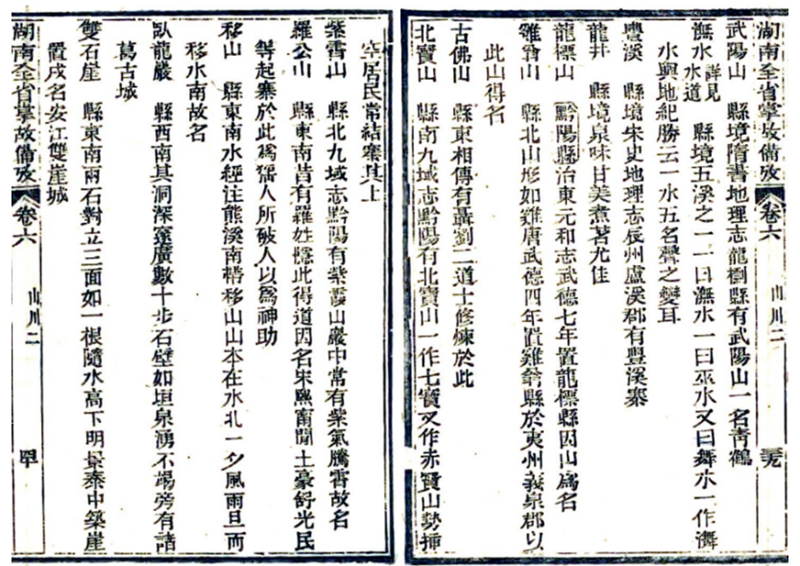 湖南全省掌故備攷 卷六 山川二 三九
武陽山 縣境隋書地理志龍檦縣有武陽山一名青鶴
潕水 詳見水道 縣境五溪之一一曰潕水一曰巫水又曰舞水一作㵲
水輿地紀勝云一水五名聲之變耳
豐溪 縣境宋史地理志辰州盧溪郡有豐溪寨
龍井 縣境泉味甘美煮茗尤佳
龍標山 黔陽縣治東元和志武德七年置龍標縣因山爲名
雞翁山 縣北山形如雞唐武德四年置雞翁縣於夷州義泉郡以
此山得名
古佛山 縣東相傳有聶劉二道士修煉於此
北寶山 縣南九域志黔陽有北寶山一作七寶又作赤寶山勢插
空居民常結寨其上
紫霄山 縣北九域志黔陽有紫霞山巖中常有紫氣騰霄故名
羅公山 縣東南昔有羅姓隱此得道因名宋熙甯間土豪舒光民
等起寨於此爲猺人所破人以爲神助
移山 縣東南水經注熊溪南帶移山山本在水北一夕風雨旦而
移水南故名
臥龍巖 縣西南其洞深窪廣數十步石壁如垣泉湧不竭旁有諸
葛古城
雙石崖 縣東南兩石對立三面如一根隨水高下明景泰中築崖
置戍名安江雙崖城
湖南全省掌故備攷 卷六 山川二 四十